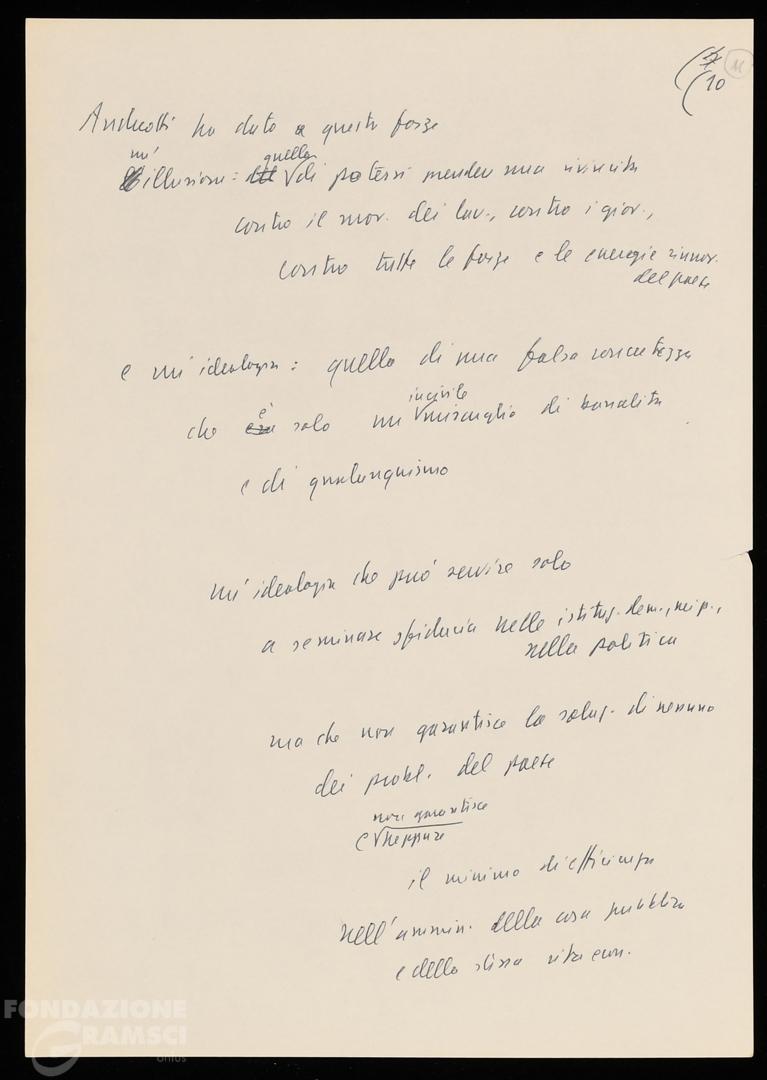 10
Andreotti ha dato a queste forze
un'
illusione: quella di potersi prendere una rivincita
contro il mov. dei lav., contro i giov.,
contro tutte le forze e le energie rinnov.
del paese
e un'ideologia: quella di una falsa concretezza
che è solo un incivile miscuglio di banalità
e di qualunquismo
un'ideologia che può servire solo
a seminare sfiducia nelle istituz. dem., nei p.,
nella politica
ma che non garantisce la soluz. di nessuno
dei probl. del paese
non garantisce
e neppure
il minimo di efficienza
nell'ammin. della cosa pubblica
e della stessa vita econ.
FONDAZIONE
GRAMSCI
onlus